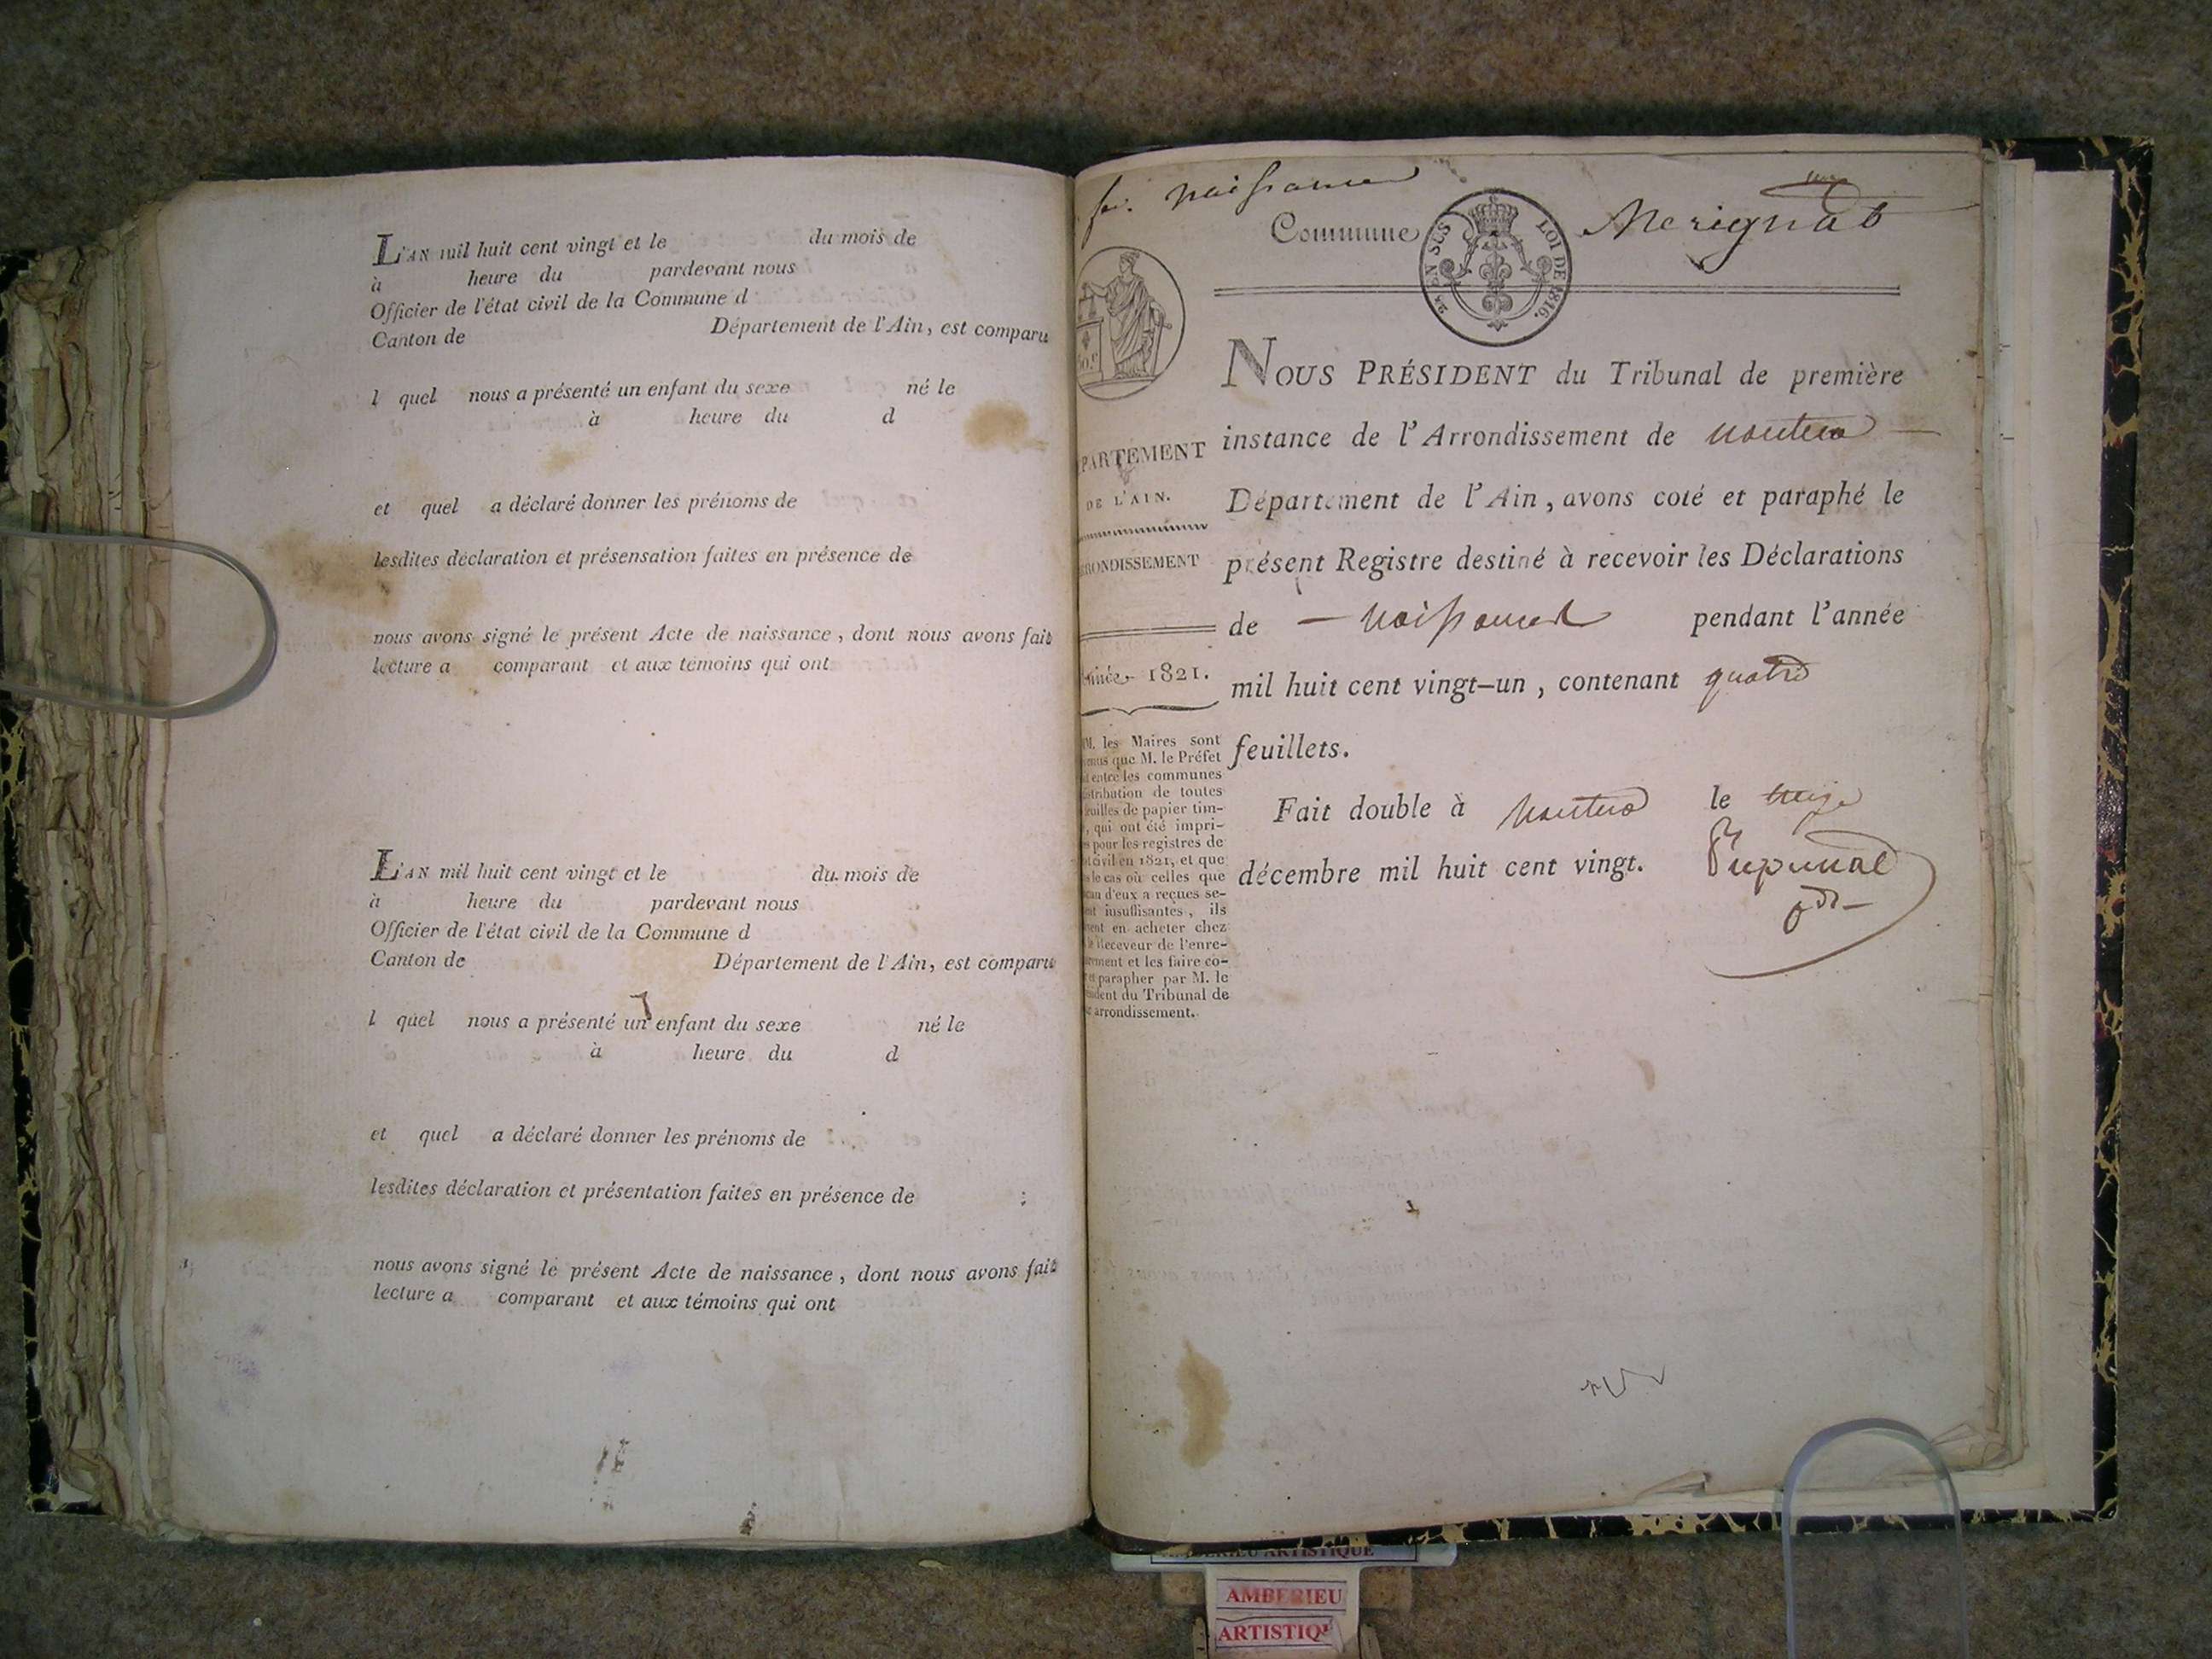 L'AN mil huit cent vingt et le du mois de
à heure du pardevant nous
Officier de l'état civil de la Commune d
Canton de Département de l'Ain, est comparu
l quel nous a présenté un enfant du sexe né le
à heure du d
et quel a déclaré donner les prénoms de
lesdites déclaration et présensation faites en présence de
nous avons signé le présent Acte de naissance, dont nous avons fait
lecture a comparant et aux témoins qui ont
L'AN mil huit cent vingt et le du mois de
à heure du pardevant nous
Officier de l'état civil de la Commune d
Canton de Département de l'Ain, est comparu
l quel nous a présenté un enfant du sexe né le
à heure du d
et quel a déclaré donner les prénoms de
lesdites déclaration et présentation faites en présence de ;
nous avons signé le présent Acte de naissance, dont nous avons fait
lecture a comparant et aux témoins qui ont
naissance
Commune Merignat
EN SUS LOI DE 1816.
PARTEMENT
DE L'AIN.
RONDISSEMENT
1821.
M. les Maires sont
que M. le Préfet
entre les communes
stribution de toutes
uilles de papier tim-
, qui ont été impri-
s pour les registres de
t civil en 1821, et que
le cas où celles que
cun d'eux a reçues se-
nt insuffisantes, ils
ent en acheter chez
le Receveur de l'enre-
rement et les faire co-
et parapher par M. le
sident du Tribunal de
arrondissement.
NOUS PRÉSIDENT du Tribunal de première
instance de l'Arrondissement de nantua
Département de l'Ain, avons coté et paraphé le
présent Registre destiné à recevoir les Déclarations
de naissances pendant l'année
mil huit cent vingt-un, contenant quatre
feuillets.
Fait double à nantua le
décembre mil huit cent vingt.
AMBERIEU ARTISTIQUE
AMBERIEU
ARTISTIQU